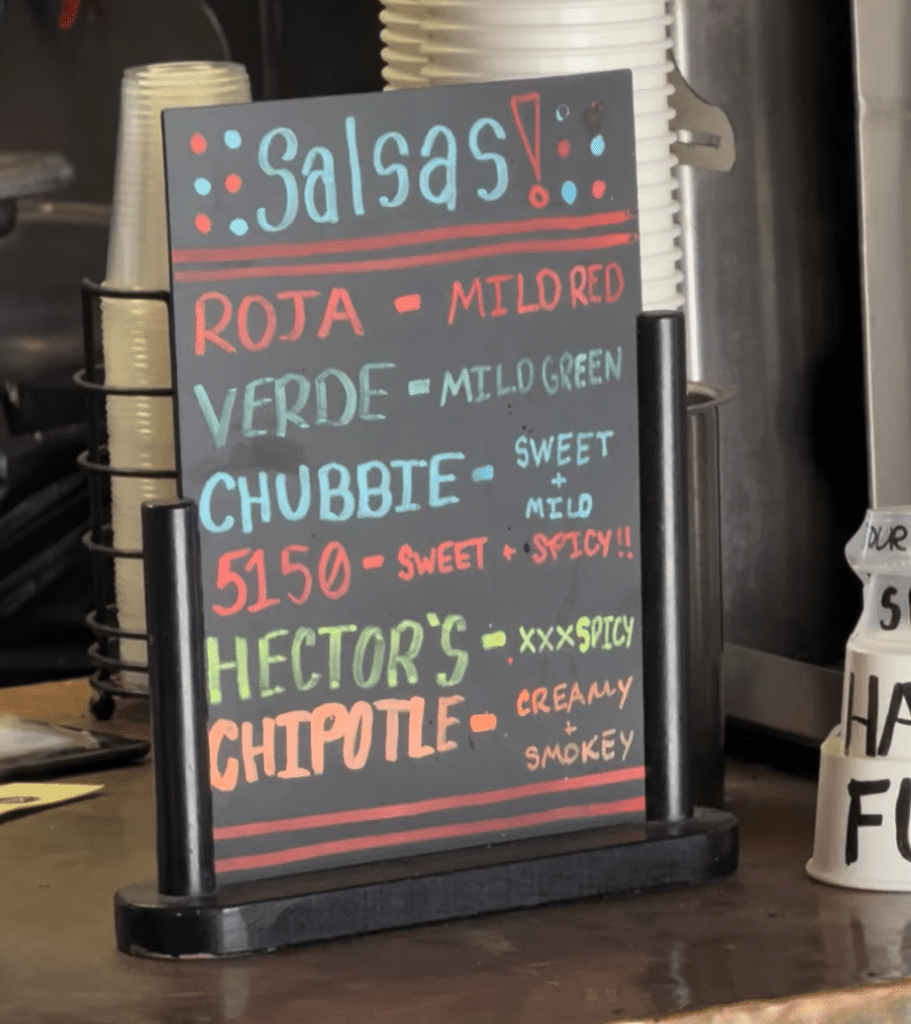 Salsas!
ROJA - MILD RED
VERDE - MILD GREEN
CHUBBIE - SWEET
+
MILD
5150 - SWEET + SPICY!!
HECTOR'S - XXXSPICY
CHIPOTLE - CREAMY
+
SMOKEY
OUR
HA
FU